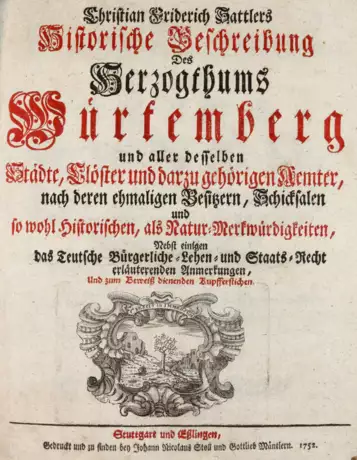 Christian Friderich Sattlers
Historische Beschreibung
Des
Herzogthums
Würtemberg
und aller desselben
Städte, Clöster und darzu gehörigen Aemter,
nach deren ehmaligen Besitzern, Schicksalen
und
so wohl Historischen, als Natur-Merkwürdigkeiten,
Nebst einigen
das Teutsche Bürgerliche-Lehen-und Staats-Recht
erläuterenden Anmerkungen,
Und zum Beweiß dienenden Kupfferstichen.
Stuttgart und Eßlingen,
Gedruckt und zu finden bey Johann Nicolaus Stoll und Gottlieb Mäntlern. 1752.